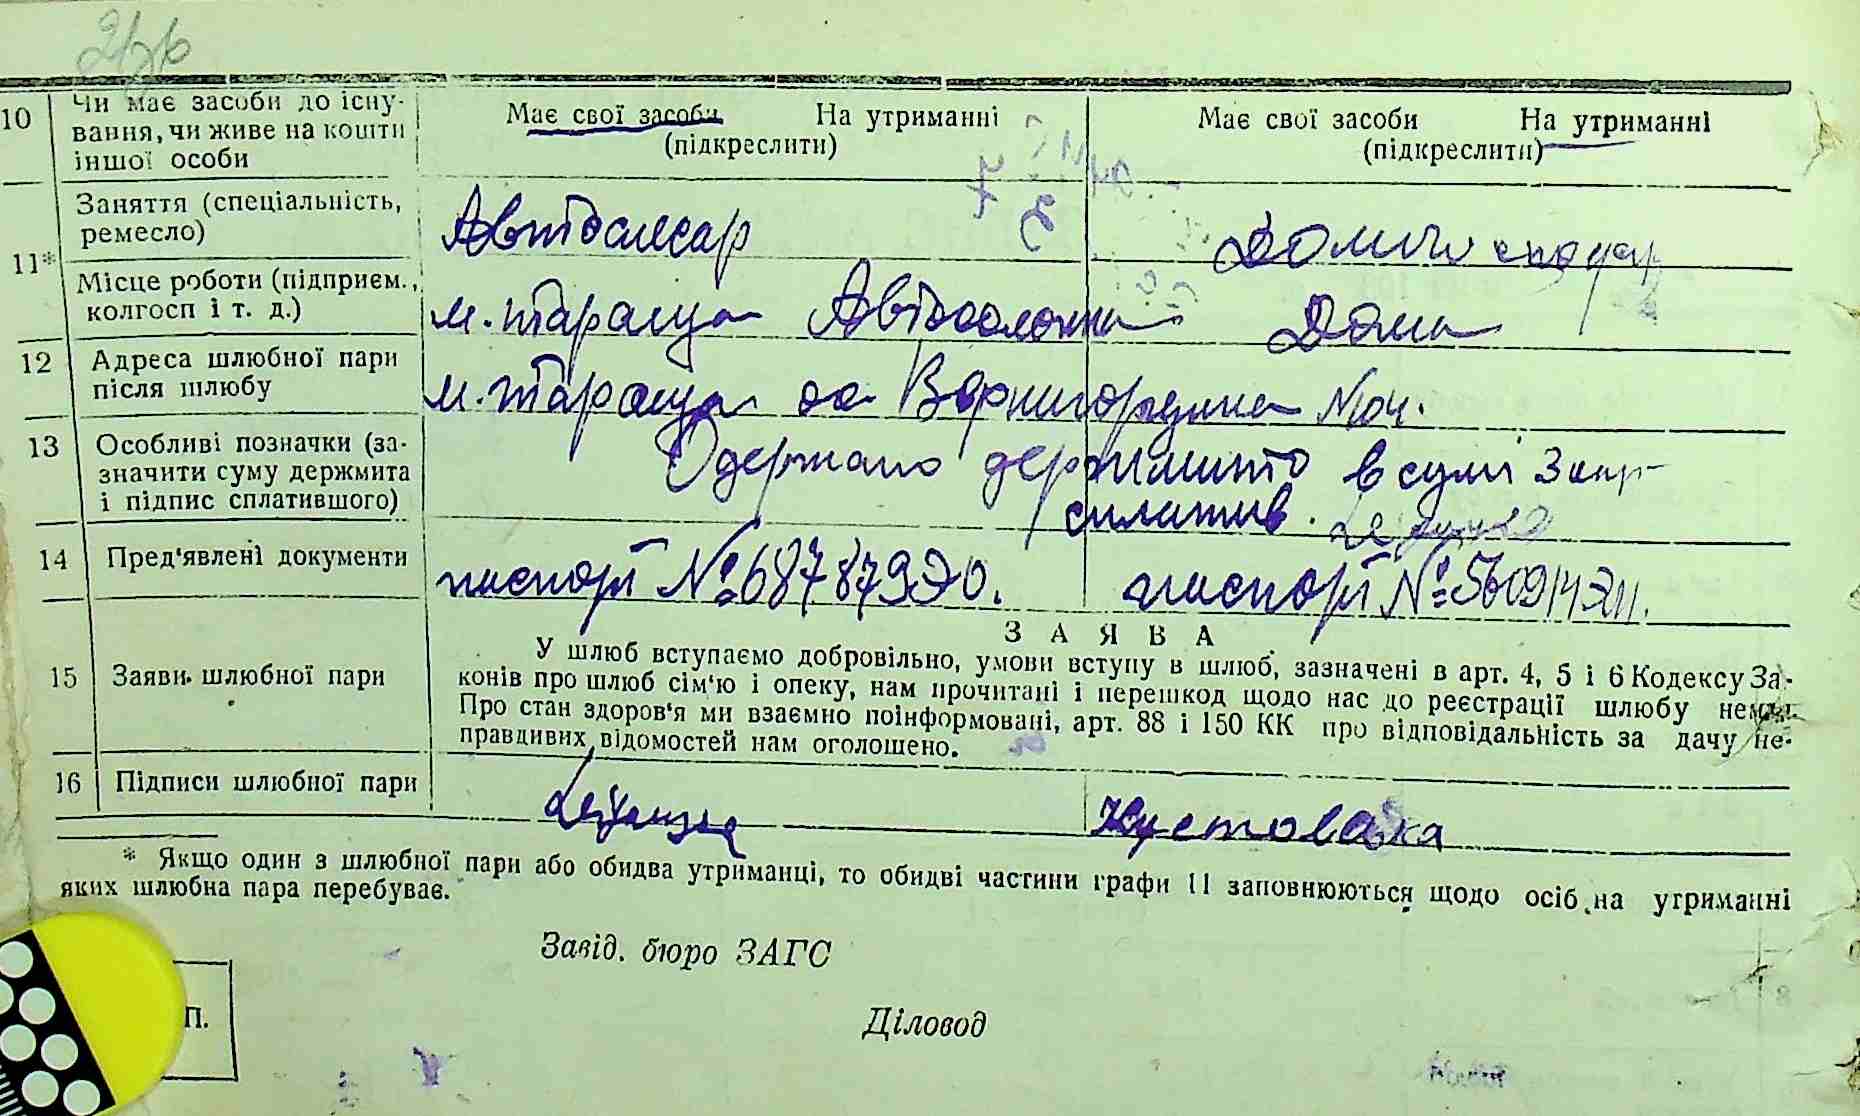 10 Чи має засоби до існу- Має свої засоби На утриманні Має свої засоби На утриманні
вання, чи живе на кошти (підкреслити) (підкреслити)
іншої особи
11* Заняття (спеціальність, Автослесар Домогосподар
ремесло)
Місце роботи (підприєм., м. Тараща Автоколона Дома
колгосп і т. д.)
12 Адреса шлюбної пари м. Тараща
після шлюбу
13 Особливі позначки (за- Одержано держмито в сумі 3 кар
значити суму держмита сплатив.
і підпис сплатившого)
14 Пред'явлені документи паспорт № паспорт №
З А Я В А
15 Заяви шлюбної пари У шлюб вступаємо добровільно, умови вступу в шлюб, зазначені в арт. 4, 5 і 6 Кодексу За-
конів про шлюб сім'ю і опеку, нам прочитані і перешкод щодо нас до реєстрації шлюбу нема.
Про стан здоров'я ми взаємно поінформовані, арт. 88 і 150 КК про відповідальність за дачу не-
правдивих відомостей нам оголошено.
16 Підписи шлюбної пари
* Якщо один з шлюбної пари або обидва утриманці, то обидві частини графи 11 заповнюються щодо осіб на утриманні
яких шлюбна пара перебуває.
Завід. бюро ЗАГС
П.
Діловод